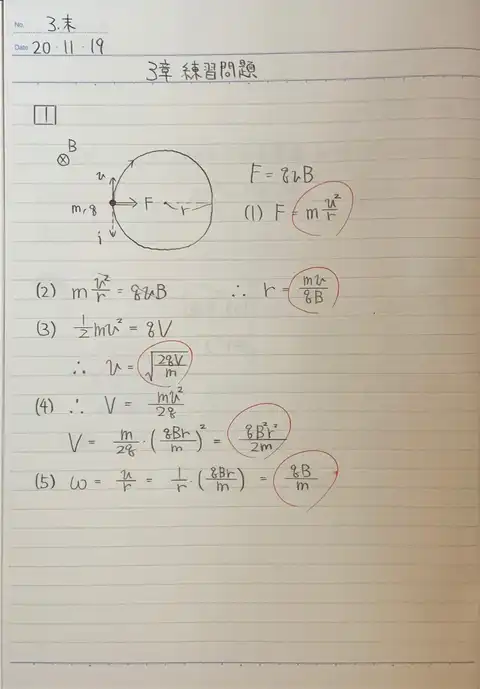 No. 3.末
Date 20・11・19
3章 練習問題
1
B
u
m, q
F
r
i
F = quB
(1) F = m u²/r
(2) m u²/r = quB ∴ r = mu/qB
(3) 1/2 mu² = qV
∴ u = √(2qV/m)
(4) ∴ V = mu²/2q
V = m/2q · (qBr/m)² = qB²r²/2m
(5) ω = u/r = 1/r · (qBr/m) = qB/m